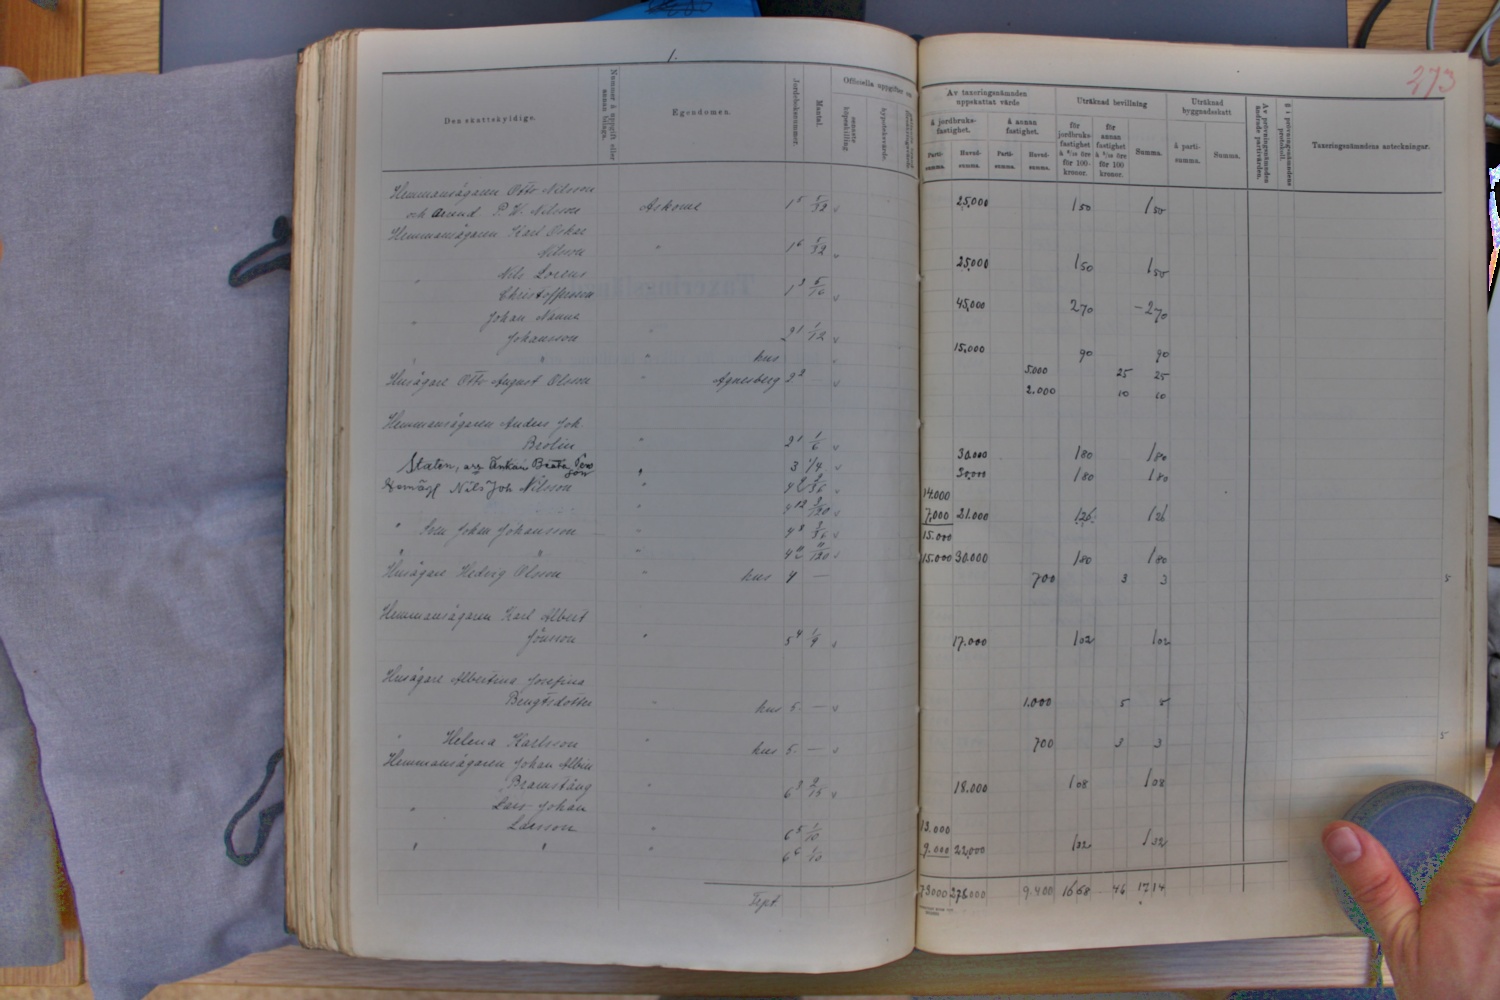 1.
273
Den skattskyldige.
Nummer å uppgift eller annan bilaga.
Egendomen.
Jordeboksnummer.
Mantal.
Officiella uppgifter om
senaste köpeskilling.
hypoteksvärde.
Av taxeringsnämnden uppskattat värde
å jordbruksfastighet.
å annan fastighet.
Partisumma.
Huvudsumma.
Partisumma.
Huvudsumma.
Uträknad bevillning
för jordbruksfastighet å 6/10 öre för 100 kronor.
för annan fastighet å 5/10 öre för 100 kronor.
Summa.
Uträknad byggnadsskatt.
å partisumma.
Summa.
Av prövningsnämnden ändrade partivärden.
§ i prövningsnämndens protokoll.
Taxeringsnämndens anteckningar.
Hemmansägaren Otto Nilsson
och P. W. Nilsson Askome 1⁵ 5/32 25.000 1 50 1 50
Hemmansägaren Karl Oskar
Nilsson " 1⁶ 5/32 25.000 1 50 1 50
" Nils Lorens
Christoffersson 1³ 5/16 45.000 2 70 2 70
" Johan Nanna
Johansson " 2¹ 1/12 15.000 90 90
" " " hus 5.000 25 25
Husägare Otto August Olsson " Agnesberg 2² 2.000 10 10
Hemmansägaren Anders Joh.
Brolin " 2¹ 1/6 30.000 1 80 1 80
Staten, 3 1/4 30.000 1 80 1 80
Nils Joh Nilsson " 14.000
" 7.000 21.000 1 26 1 26
" Sven Johan Johansson " 15.000
" " " 15.000 30.000 1 80 1 80
Husägare Hedvig Olsson " hus 4 — 700 3 3
Hemmansägaren Karl Albert
Jönsson " 5⁴ 1/4 17.000 1 02 1 02
Husägare Albertina Josefina
Bengtsdotter hus 5 — 1.000 5 5
" Helena Karlsson " hus 5 — 700 3 3
Hemmansägaren Johan Albin
Bramstång " 6³ 2/15 18.000 1 08 1 08
" Lars Johan
Larsson " 6⁵ 1/10 13.000
" " " 6⁶ 1/10 9.000 22.000 1 32 1 32
Tspt 73000 278.000 9.400 16 68 46 17 14